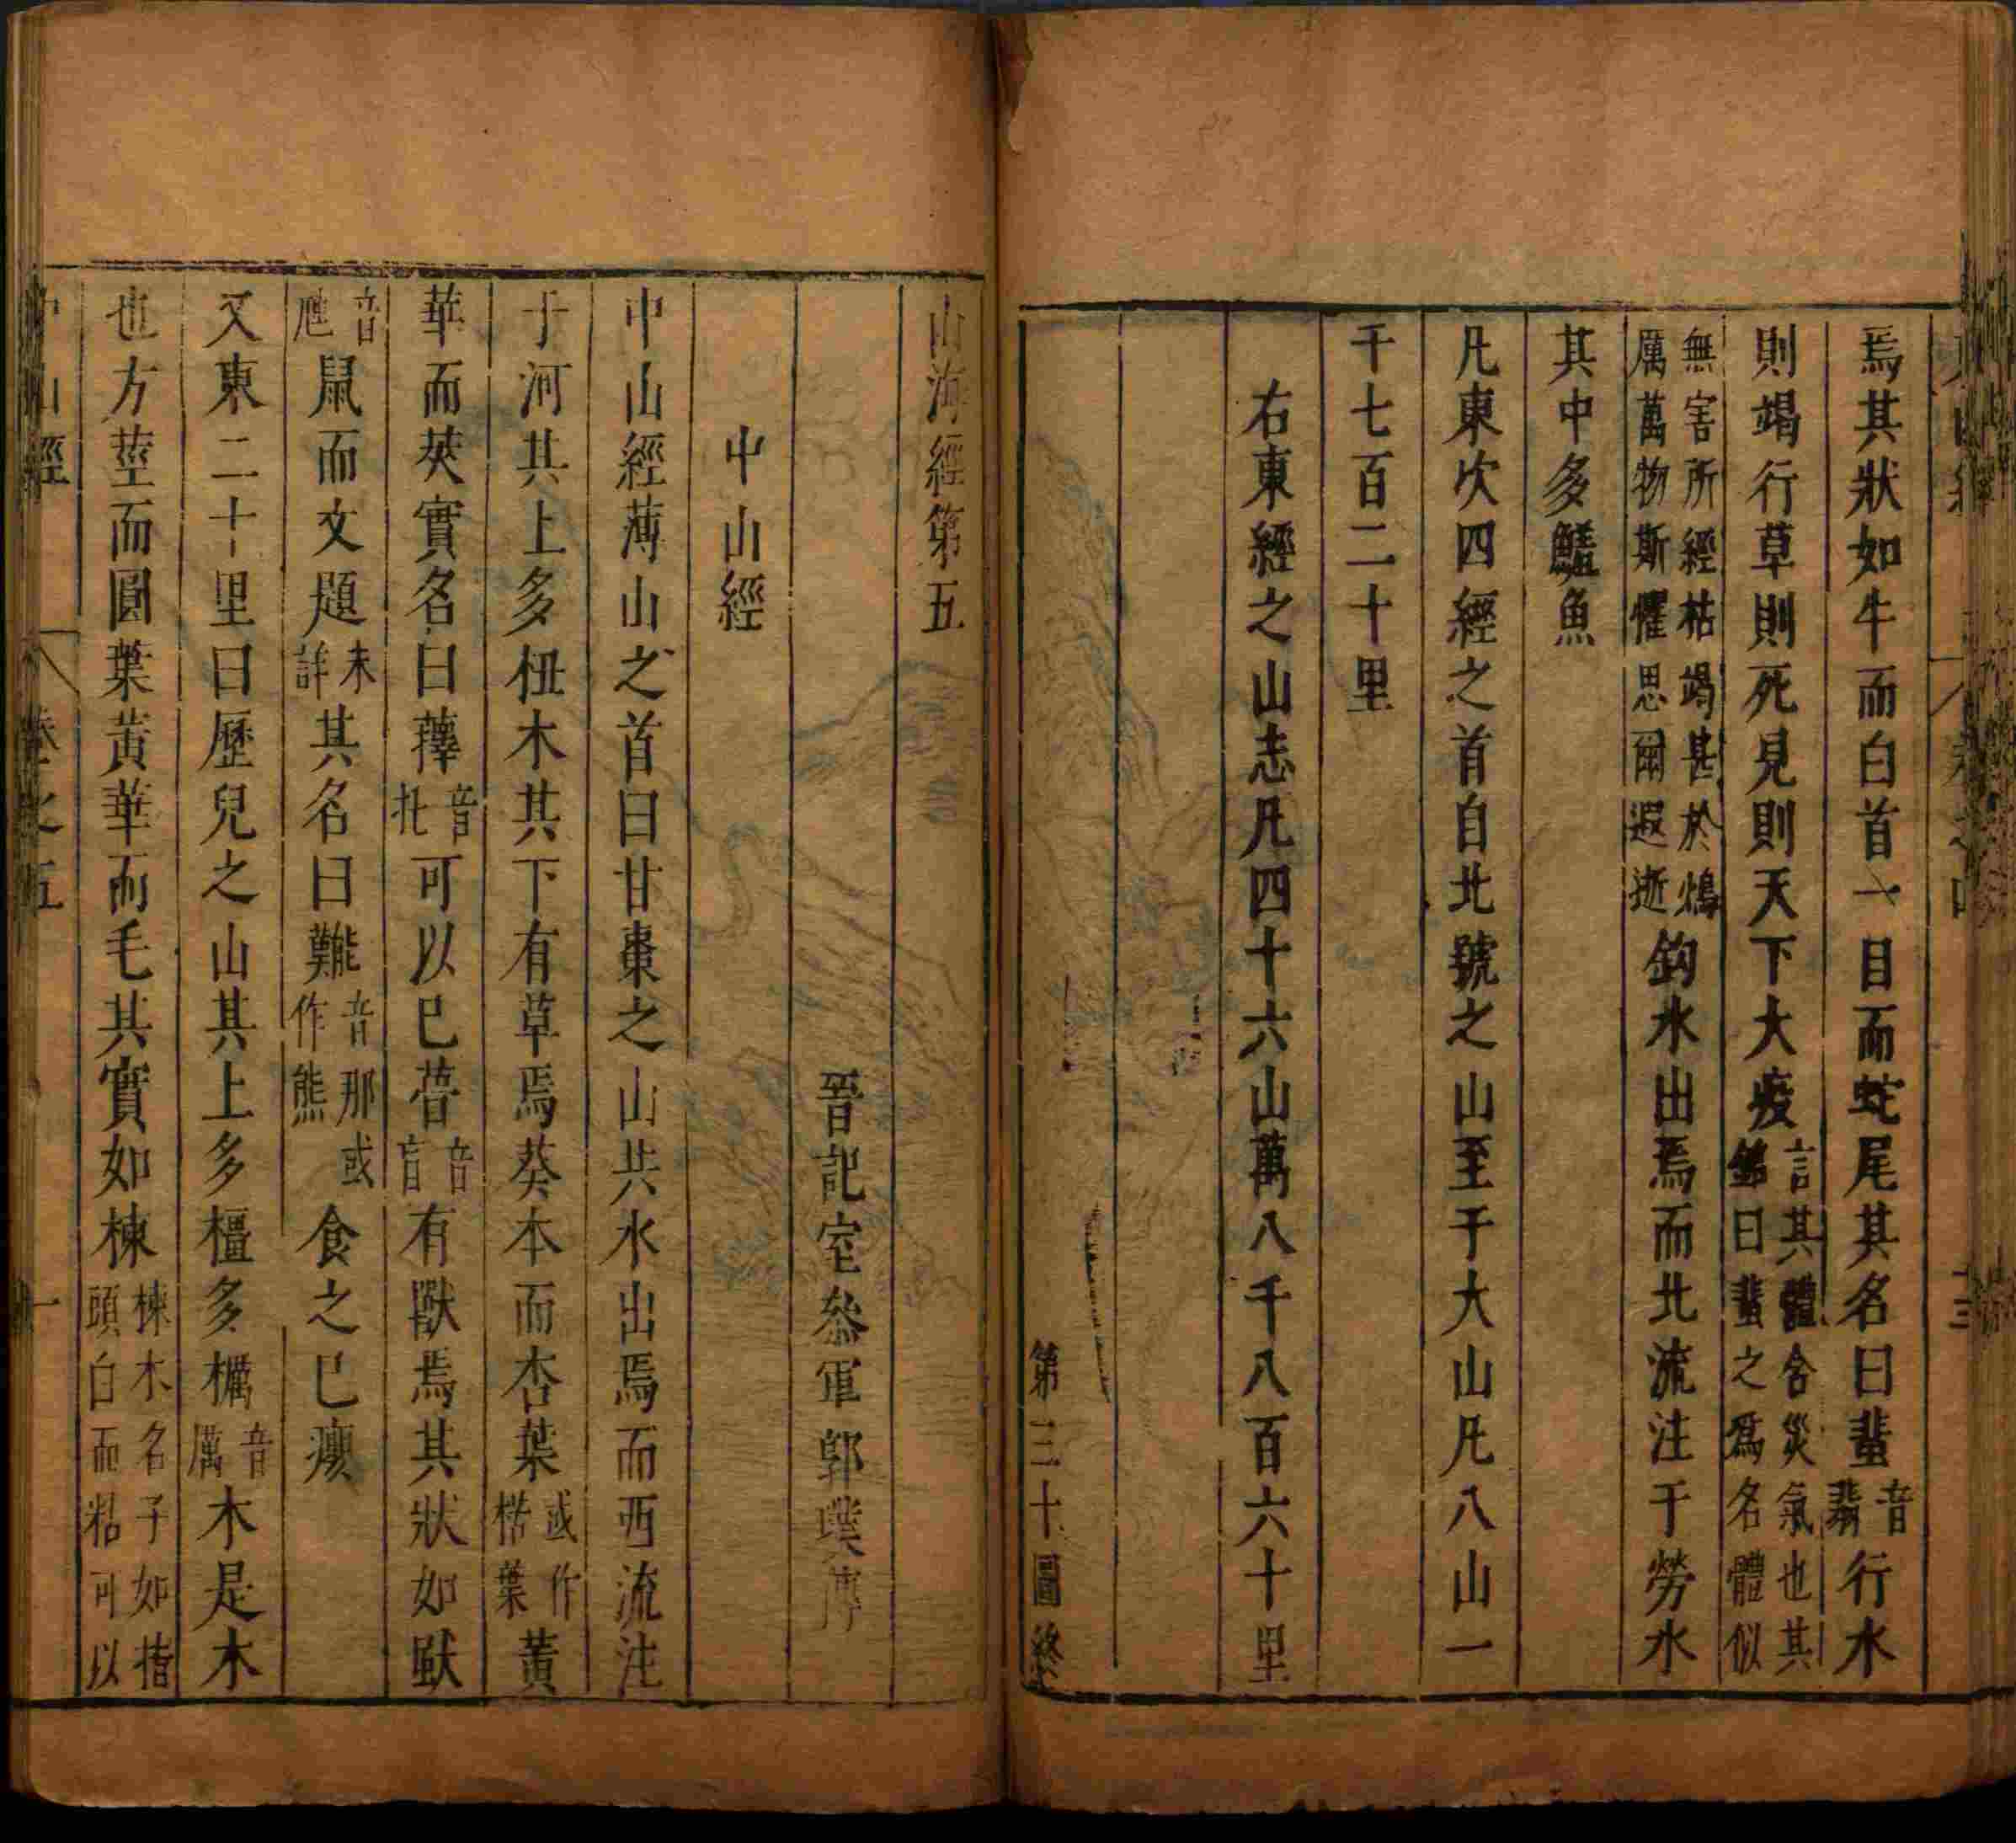 焉其狀如牛而白首一目而蛇尾其名曰蜚音翡行水
則竭行草則死見則天下大疫言其體含災氣也其銘曰蜚之為名體似
無害所經枯竭甚於鴆厲萬物斯懼思爾遐逝鉤水出焉而北流注于勞水
其中多鱃魚
凡東次四經之首自北號之山至于大山凡八山一
千七百二十里
右東經之山志凡四十六山萬八千八百六十里
第三十圖終
山海經第五
晉記室叅軍郭璞傳
中山經
中山經薄山之首曰甘棗之山共水出焉而西流注
于河其上多杻木其下有草焉葵本而杏葉或作楛葉黃
華而莢實名曰蘀音托可以已瞢音盲有獸焉其狀如䶂
音虺鼠而文題未詳其名曰㔮音那或作熊食之已癭
又東二十里曰歷兒之山其上多橿多櫔音厲木是木
也方莖而圓葉黃華而毛其實如楝楝木名子如指頭白而粘可以
中山經 卷之五 一